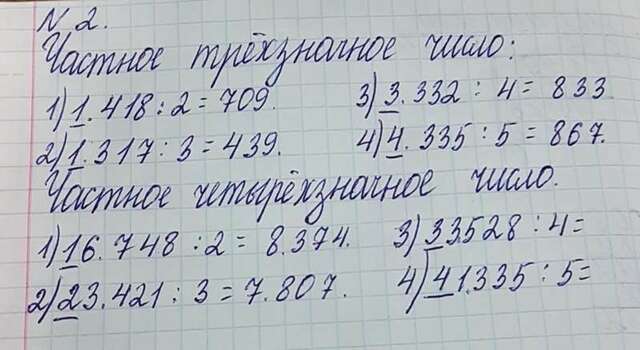 N 2.
Частное трёхзначное число:
1) 1.418 : 2 = 709. 3) 3.332 : 4 = 833
2) 1.317 : 3 = 439. 4) 4.335 : 5 = 867.
Частное четырёхзначное число.
1) 16.748 : 2 = 8.374. 3) 33528 : 4 =
2) 23.421 : 3 = 7.807. 4) 41.335 : 5 =